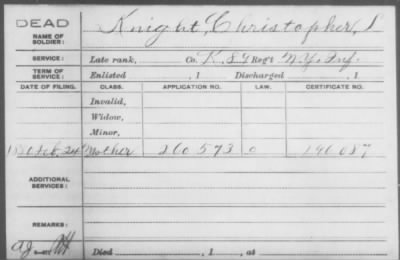 DEAD
NAME OF
SOLDIER:
Knight, Christopher,
SERVICE:
Late rank, Co. K, Reg't N.Y. Inf.
TERM OF
SERVICE:
Enlisted , 1 Discharged , 1
DATE OF FILING. CLASS. APPLICATION NO. LAW. CERTIFICATE NO.
Invalid,
Widow,
Minor,
Feb. 24 Mother 200.573 190.087
ADDITIONAL
SERVICES:
REMARKS:
Died , 1 , at